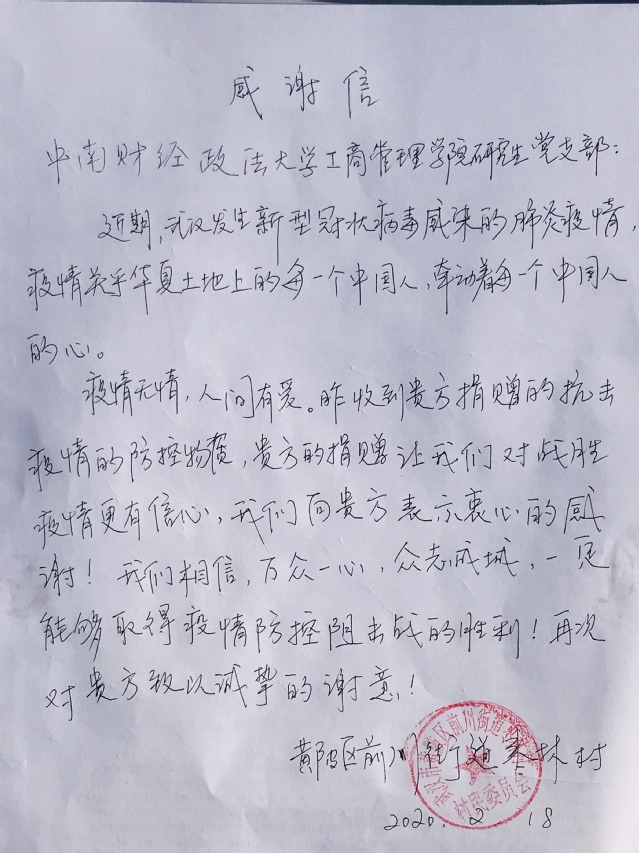 感谢信
中南财经政法大学工商管理学院研究生党支部：
近期，武汉发生新型冠状病毒感染的肺炎疫情，
疫情关乎华夏土地上的每一个中国人，牵动着每一个中国人
的心。
疫情无情，人间有爱。昨收到贵方捐赠的抗击
疫情的防控物资，贵方的捐赠让我们对战胜
疫情更有信心，我们向贵方表示衷心的感
谢！我们相信，万众一心，众志成城，一定
能够取得疫情防控阻击战的胜利！再次
对贵方致以诚挚的谢意！
黄陂区前川街道 林村
武汉市 区前川街道
村民委员会
2020.2 18